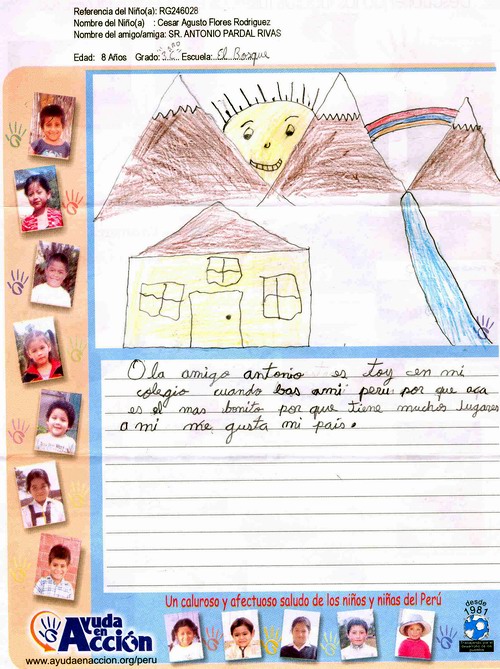 Referencia del Niño(a): RG246028
Nombre del Niño(a) : Cesar Agusto Flores Rodriguez
Nombre del amigo/amiga: SR. ANTONIO PARDAL RIVAS
Edad: 8 Años Grado: 3 C Escuela: El Bosque
Ola amigo antonio es toy en mi
colegio cuando bas ami peru por que aca
es el mas bonito por que tiene muchos lugares
a mi me gusta mi pais.
Un caluroso y afectuoso saludo de los niños y niñas del Perú
desde
1981
Ayuda
en
Acción
www.ayudaenaccion.org/peru